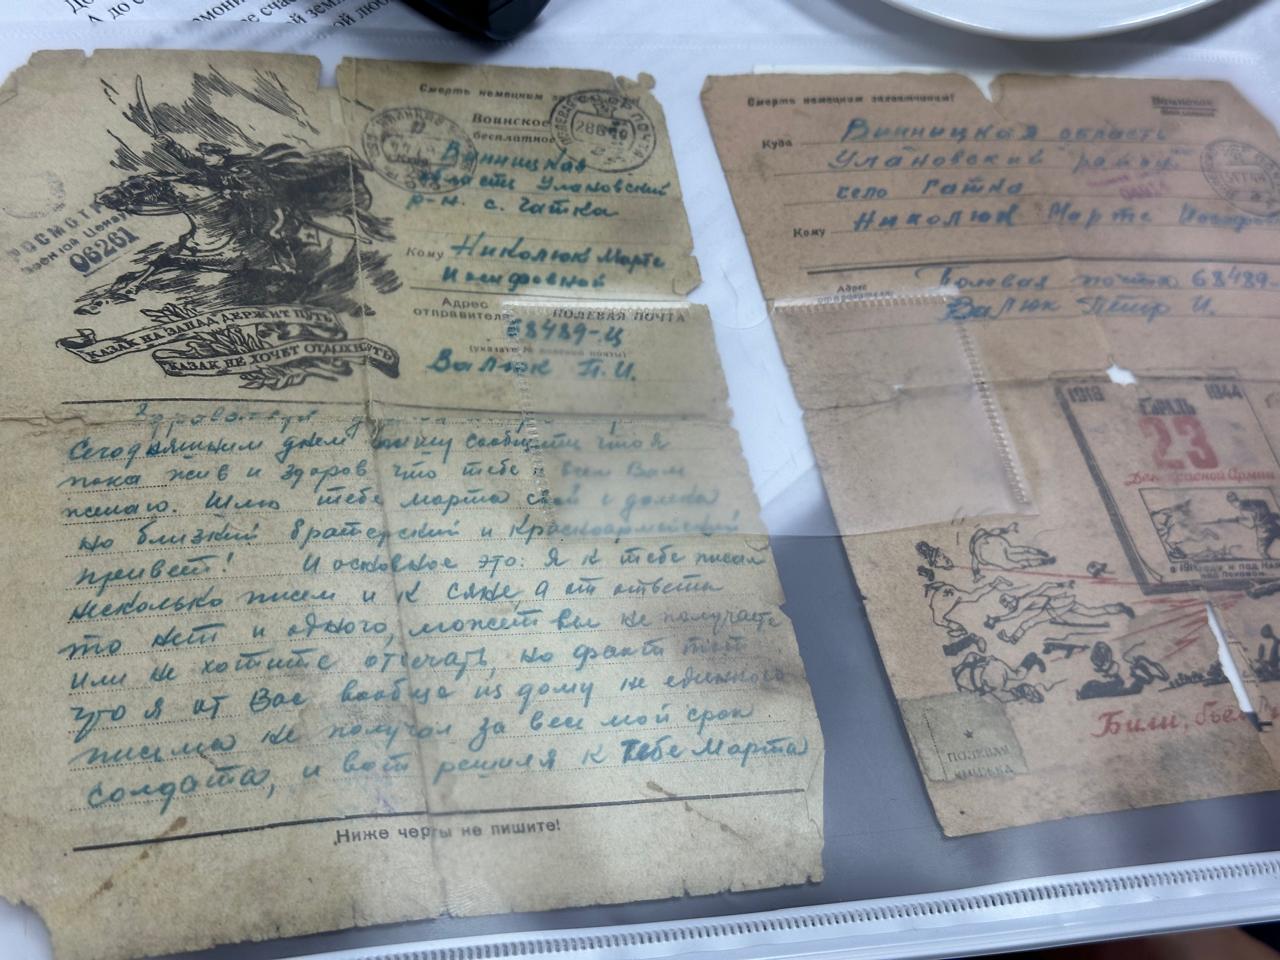 Смерть немецким
Воинское
бесплатное
Винницкая
области Улановский
р-н. с. Гатка
Кому Николюк Марте
Иосифовной
Адрес
отправителя
ПОЛЕВАЯ ПОЧТА
68489-Ц
Валюк П. И.
ПРОСМОТРЕНО
Военной Цензурой
06261
КАЗАК НА ЗАПАД ДЕРЖИТ ПУТЬ,
КАЗАК НЕ ХОЧЕТ ОТДОХНУТЬ
Здравствуй
Сегодняшним днем хочу сообщити что я
пока жив и здоров что тебе и всем Вам
желаю. Шлю тебе Марта свой с далека
но близкий братерский и Красноармейский
привет! И основное это: Я к тебе писал
несколько писем и к сяке, а от ответа
то нет и одного, может вы не получаете
или не хотите отвечать, но факт тот
что я от Вас вообще из дому не единного
письма не получал за весь мой срок
солдата, и вот решил я к тебе Марта
Ниже черты не пишите!
Смерть немецким захватчикам!
Воинское
Куда Винницкая область
Улановский район
село Гатка
Кому Николюк Марте
Адрес
отправителя:
Полевая почта 68489-
Валюк Петр И.
1918 1944
23
День Красной Армии
Били, бьём
ПОЛЕВАЯ